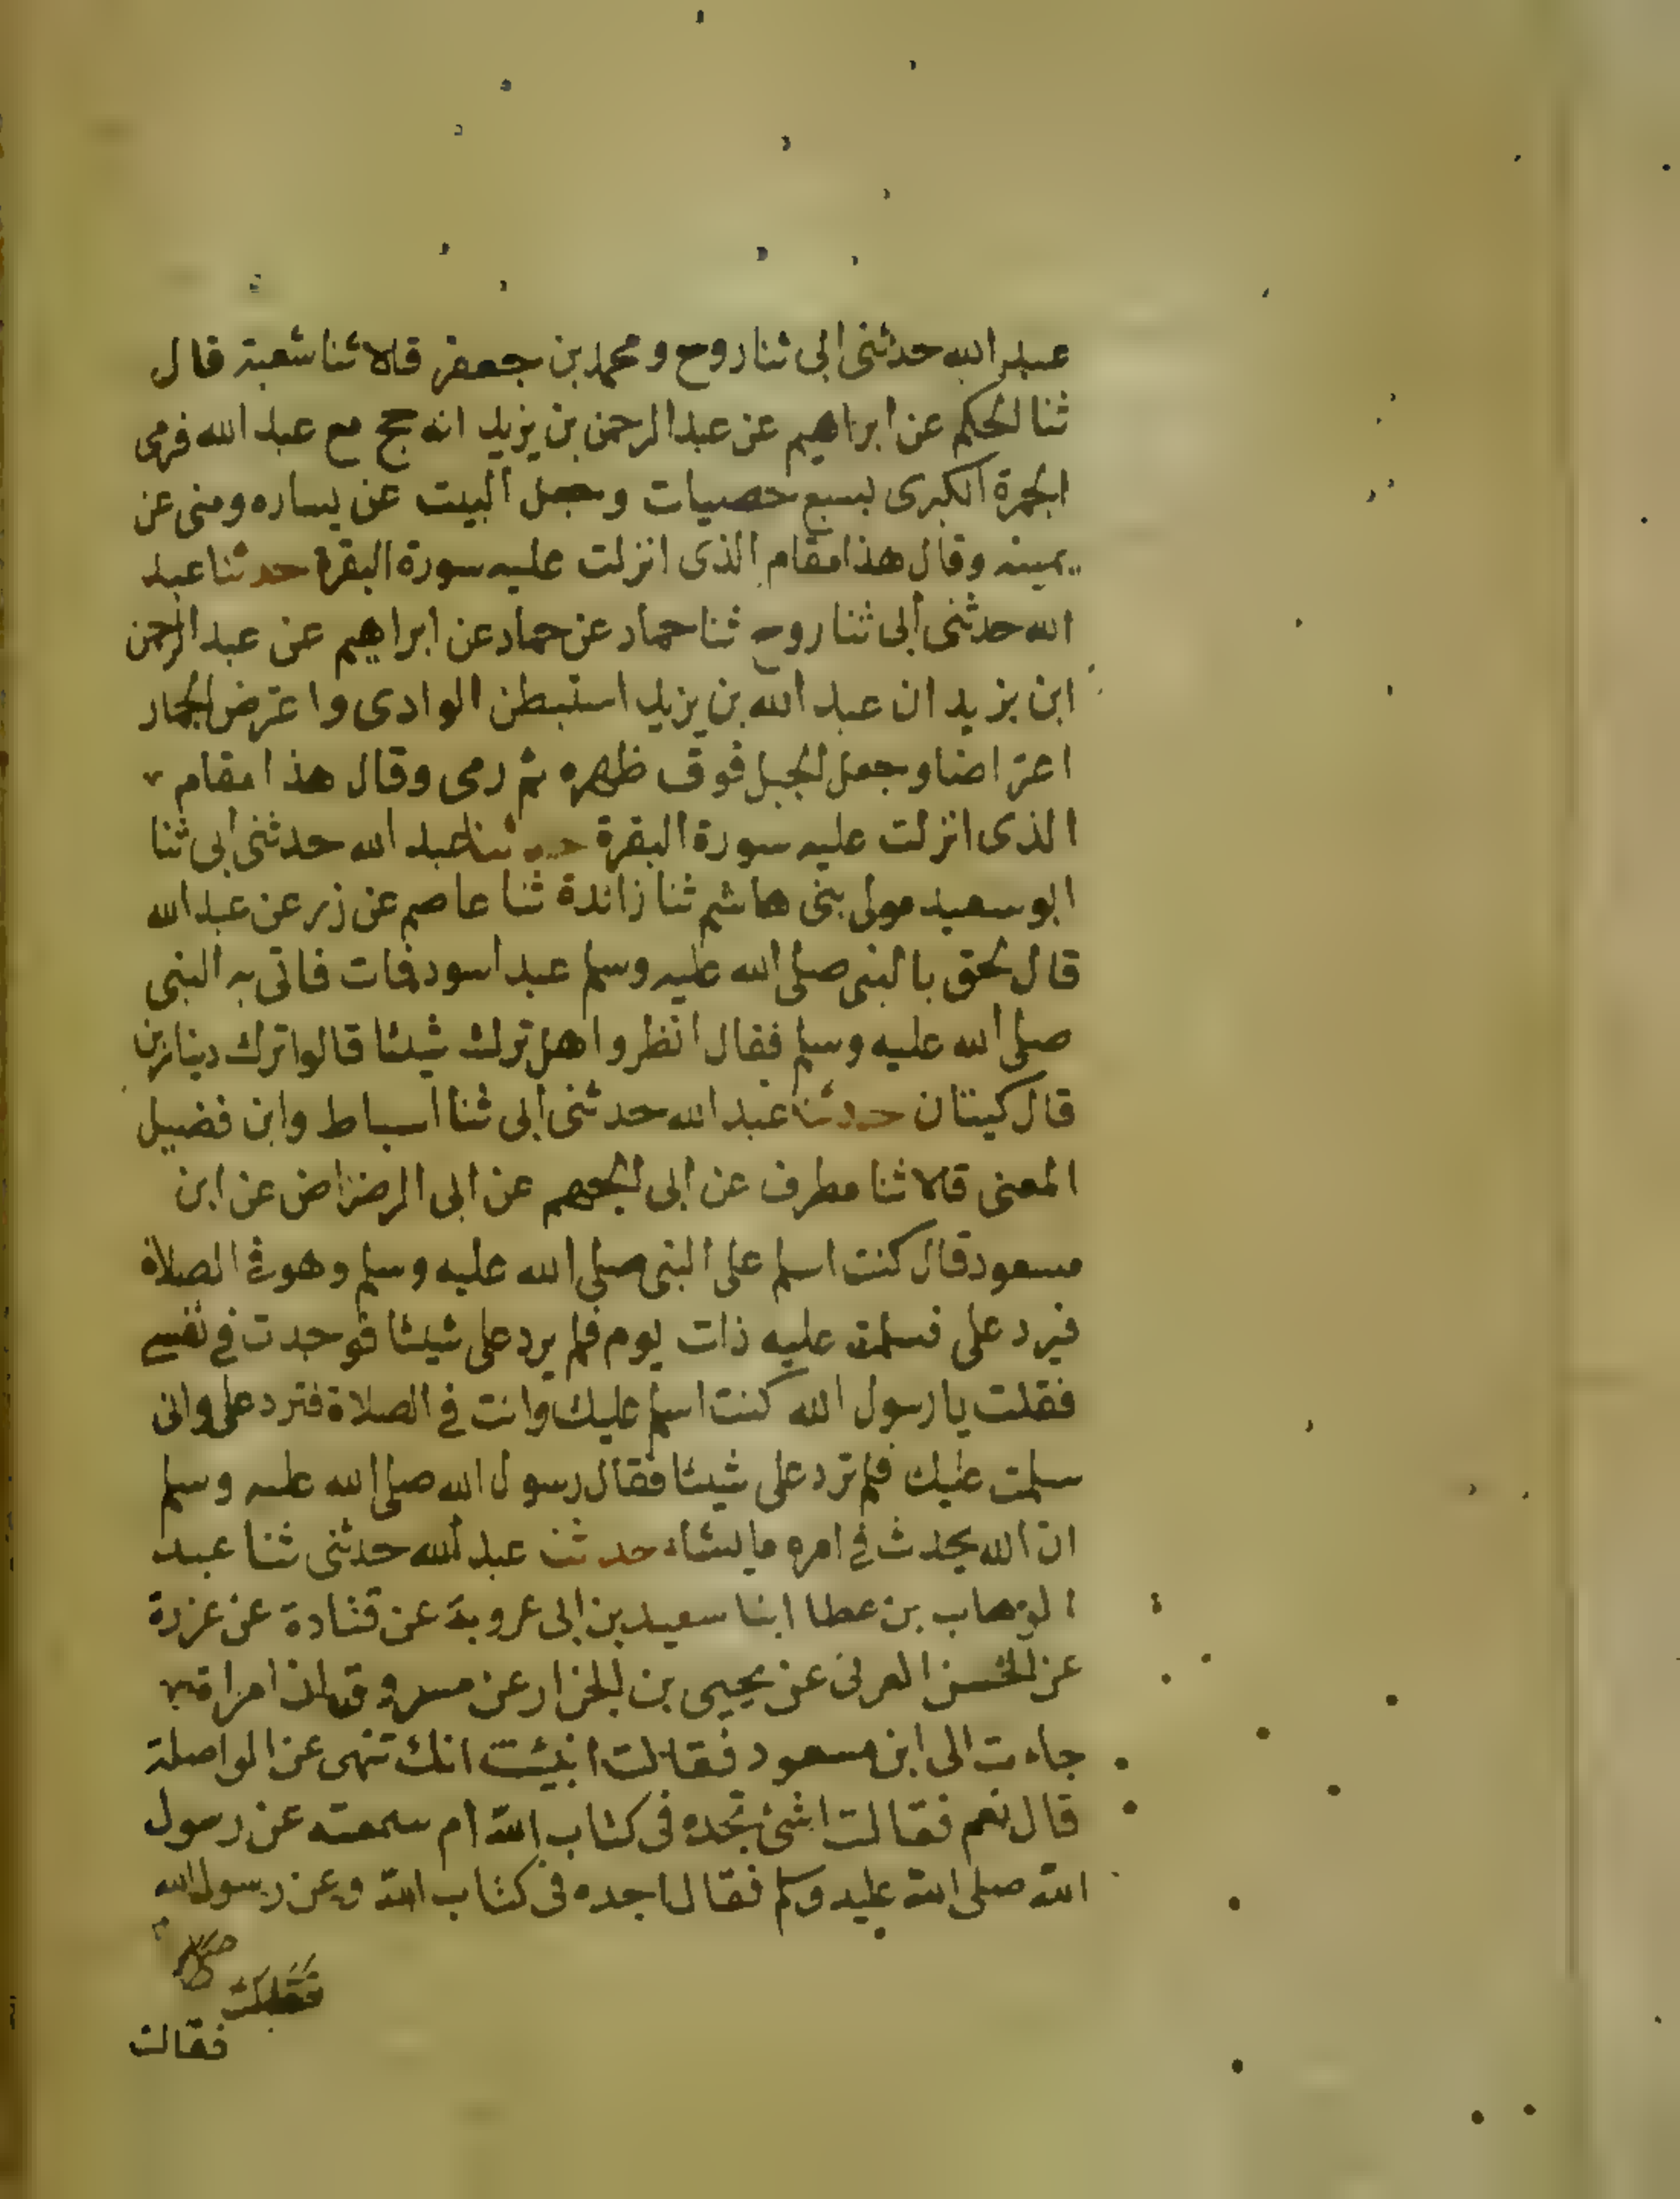 عبد الله حدثنى ابى ثنا روح و محمد بن جعفر قالا ثنا شعبة قال
ثنا الحكم عن ابراهيم عن عبد الرحمن بن يزيد انه حج مع عبد الله فرمى
الجمرة الكبرى بسبع حصيات وجعل البيت عن يساره ومنى عن
يمينه وقال هذا مقام الذى انزلت عليه سورة البقرة حدثنا عبد
الله حدثنى ابى ثنا روح ثنا حماد عن حماد عن ابراهيم عن عبد الرحمن
ابن يزيد ان عبد الله بن يزيد استبطن الوادى واعترض الجمار
اعتراضا وجعل الجبل فوق ظهره ثم رمى وقال هذا مقام
الذى انزلت عليه سورة البقرة حدثنا عبد الله حدثنى ابى ثنا
ابو سعيد مولى بنى هاشم ثنا زائدة ثنا عاصم عن زر عن عبد الله
قال لحق بالنبى صلى الله عليه وسلم عبد اسود فمات فاتى به النبى
صلى الله عليه وسلم فقال انظروا هل ترك شيئا قالوا ترك دينارين
قال كيتان حدثنا عبد الله حدثنى ابى ثنا اسباط وابن فضيل
المعنى قالا ثنا مطرف عن ابى الجهم عن ابى الرضراض عن ابن
مسعود قال كنت اسلم على النبى صلى الله عليه وسلم وهو فى الصلاة
فيرد على فسلمت عليه ذات يوم فلم يرد على شيئا فوجدت في نفسي
فقلت يا رسول الله كنت اسلم عليك وانت في الصلاة فترد على وانى
سلمت عليك فلم ترد على شيئا فقال رسول الله صلى الله عليه وسلم
ان الله يحدث في امره ما يشاء حدثنا عبد الله حدثنى ثنا عبد
الوهاب بن عطا انبا سعيد بن ابى عروبة عن قتادة عن عزرة
عن الحسن العرنى عن يحيى بن الجزار عن مسروق ان امراة
جاءت الى ابن مسعود فقالت انبئت انك تنهى عن المواصلة
قال نعم فقالت اشئ تجده فى كتاب الله ام سمعته عن رسول
الله صلى الله عليه وسلم فقال اجده فى كتاب الله وعن رسول الله
فقالت